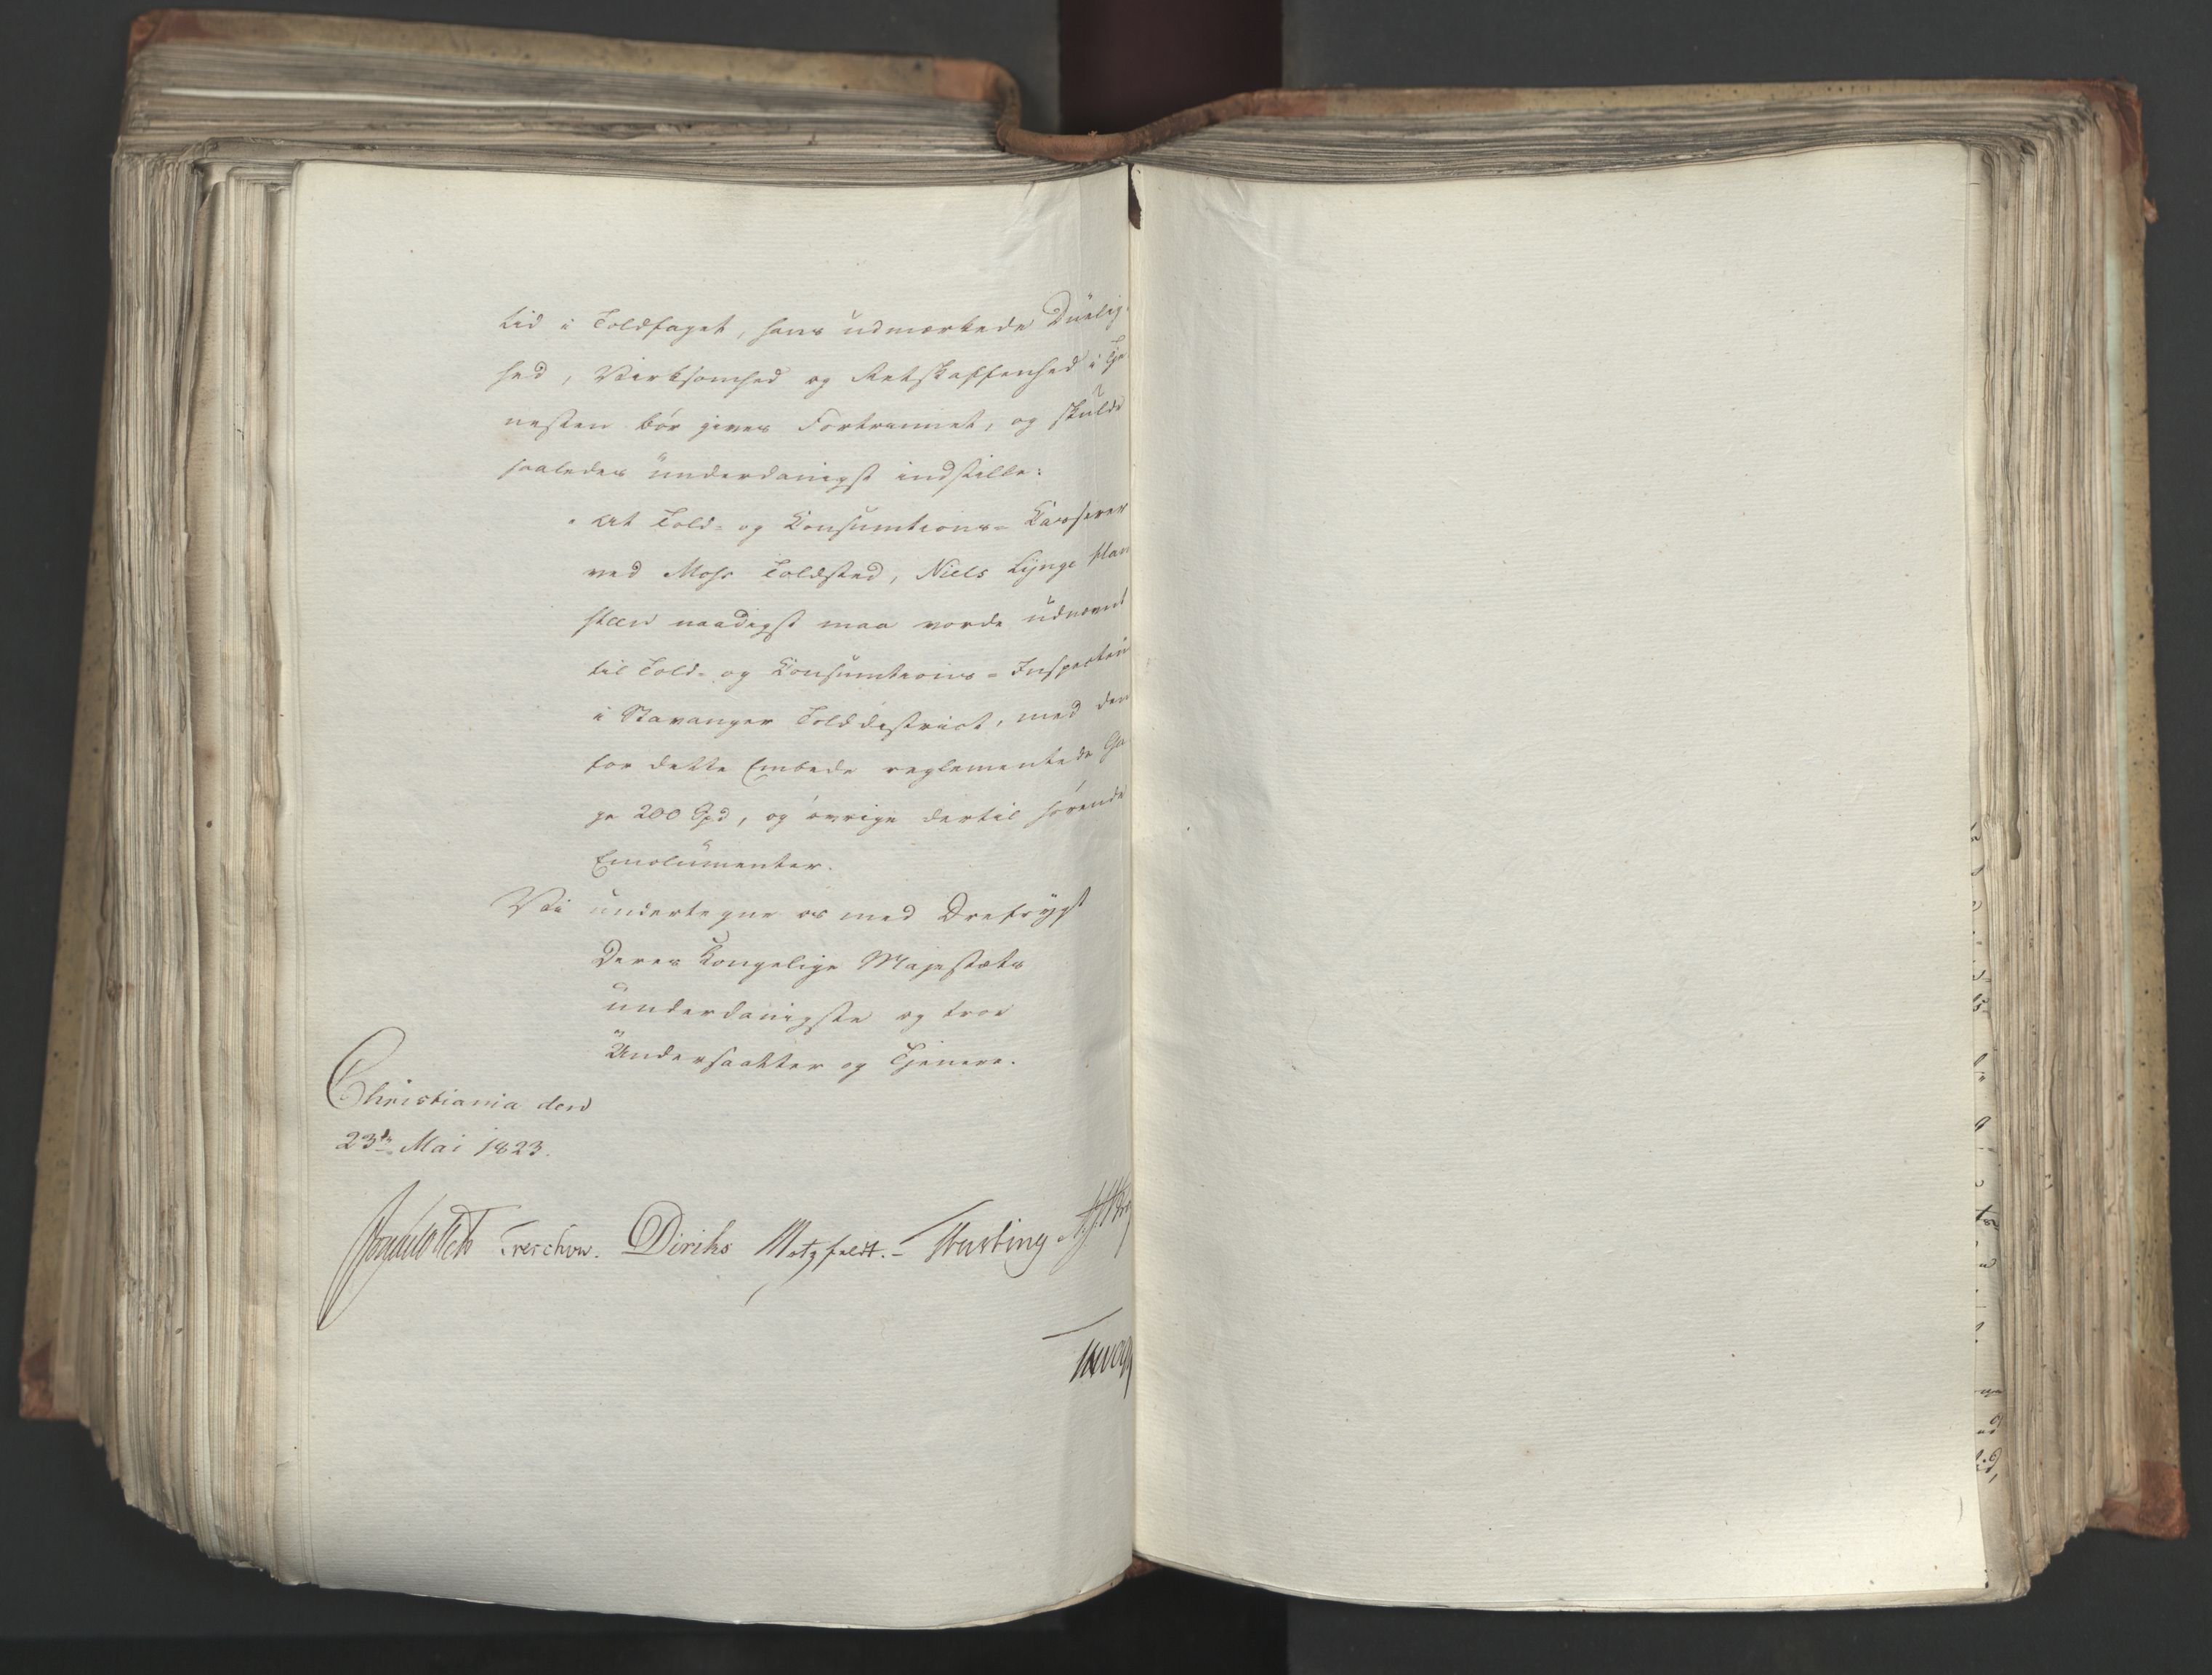 tid i Toldfaget, hans udmærkede Duelig-
hed, Virksomhed og Retskaffenhed i Tje
nesten bør gives Fortrinnet, og skulde
saaledes underdanigst indstille:
"At Told- og Consumtions- Casserer
ved Moss Toldsted, Niels Lynge Man
steen naadigst maa vorde udnævnt
til Told- og Consumtions- Inspecteur
i Stavanger Tolddistrict, med den
for dette Embede reglementede Ga
ge 200 Spd, og øvrige dertil hørende
Emolumenter.
Vi undertegne os med Dyb
Deres Kongelige Majestæts
underdanigste og troe
Undersaatter og Tjenere.
Christiania den
23de Mai 1823.
Treschow. Diriks Motzfeldt.